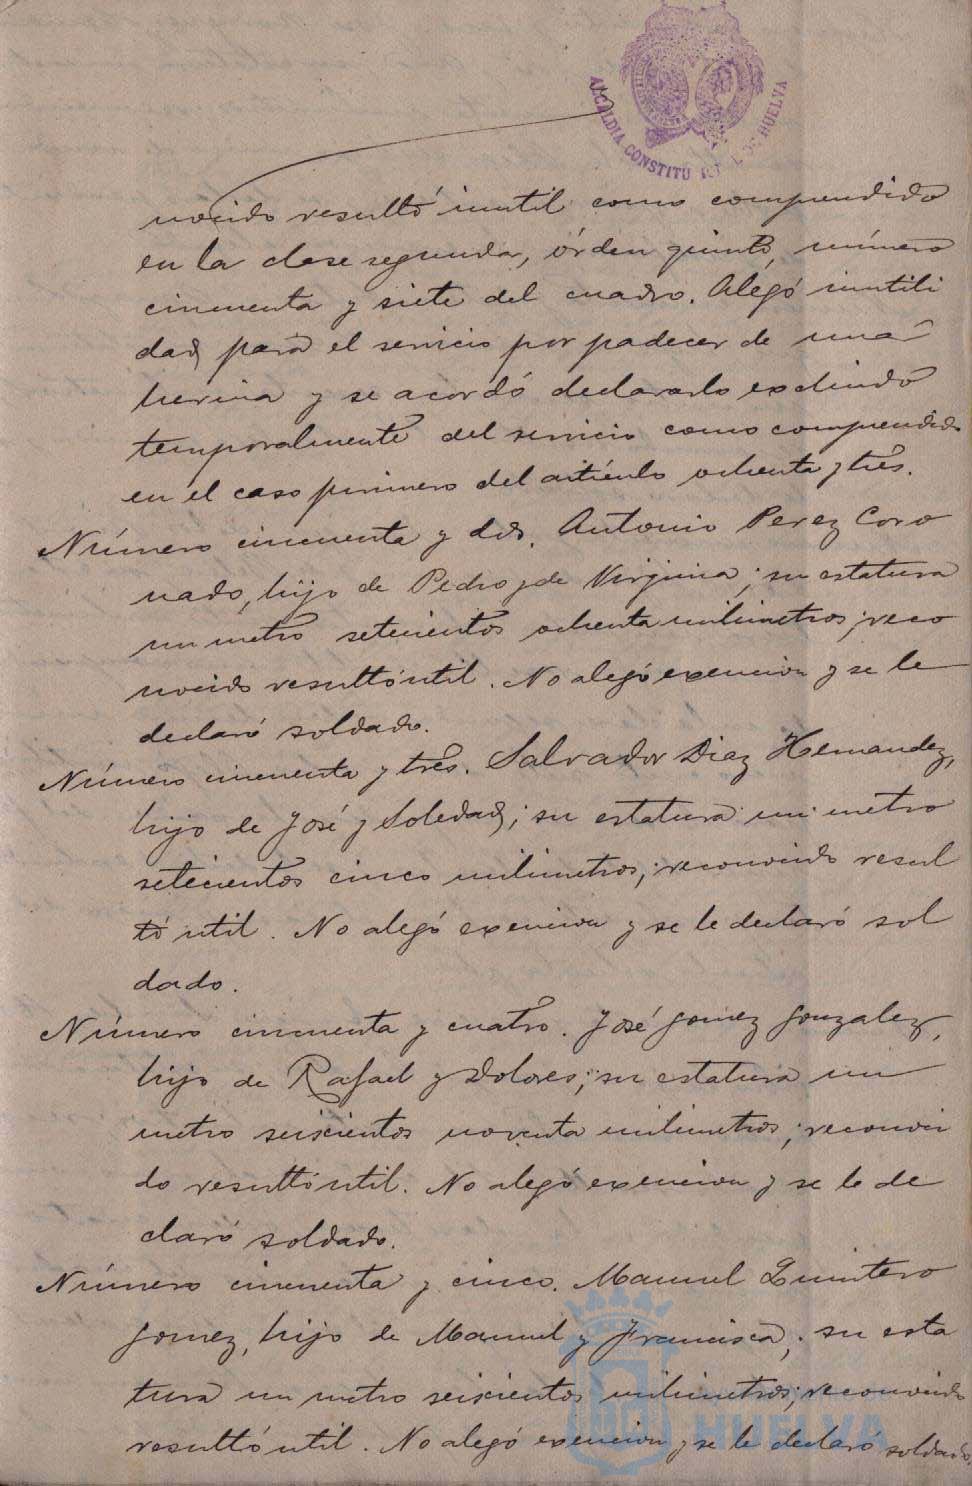 ALCALDIA CONSTITU L DE HUELVA
nocido resultó inutil como comprendido
en la clase segunda, órden quinto, número
cincuenta y siete del cuadro. Alegó inutili
dad para el servicio por padecer de una
hernia y se acordó declararlo excluido
temporalmente del servicio como comprendido
en el caso primero del artículo ochenta y tres.
Número cincuenta y dos. Antonio Perez Coro
nado, hijo de Pedro y de Virginia; su estatura
un metro setecientos ochenta milimetros; reco
nocido resultó util. No alegó exencion y se le
declaró soldado.
Número cincuenta y tres. Salvador Diaz Hernandez,
hijo de José y Soledad; su estatura un metro
setecientos cinco milimetros; reconocido resul
tó util. No alegó exencion y se le declaró sol
dado.
Número cincuenta y cuatro. José Gomez Gonzalez,
hijo de Rafael y Dolores; su estatura un
metro seiscientos noventa milimetros; reconoci
do resultó util. No alegó exencion y se le de
claró soldado.
Número cincuenta y cinco. Manuel Quintero
Gomez, hijo de Manuel y Francisca; su esta
tura un metro seiscientos milimetros; reconocido
resultó util. No alegó exencion y se le declaró soldado.
HUELVA